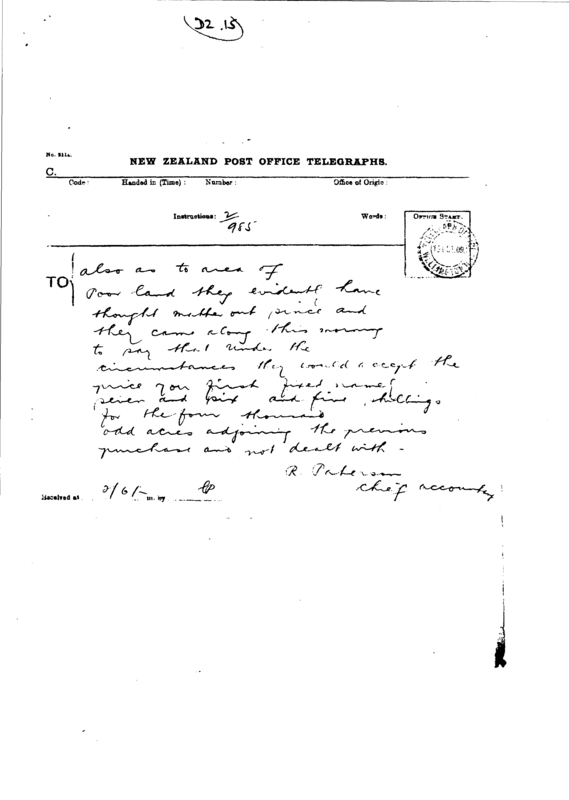 D2.15
No. 811a.
C.
NEW ZEALAND POST OFFICE TELEGRAPHS.
Code: Handed in (Time): Number: Office of Origin:
Instructions: 2/985 Words: OFFICE STAMP.
TO also as to area of
Poor land they evidentl have
thought matter out since and
they came along this morning
to say that under the
circumstances they would accept the
price you first fixed namel
seven and six and five shillings
for the four thousand
odd acres adjoining the previous
purchase and not dealt with -
R. Paterson
chief accounty
Received at 2/6/- m. by